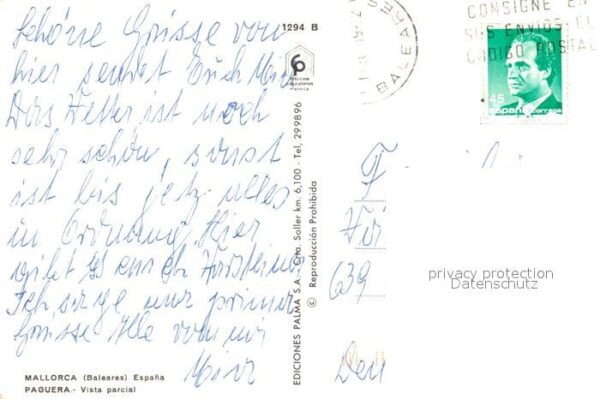 Schöne Grüsse von
hier sendet Euch
Das Wetter ist noch
sehr schön, sonst
ist bis jetz alles
in Ordnung Hier
gibt es auch
Ich sage nur prima
Grüsse Alle von mir
1294 B
6
EDICIONES PALMA S.A. - Ctra. Soller km. 6,100 - Tel. 299896
© Reproducción Prohibida
MALLORCA (Baleares) España
PAGUERA.- Vista parcial
BALEARES
CONSIGNE EN
SUS ENVIOS EL
CODIGO POSTAL
45
españa correos
F
639
privacy protection
Datenschutz